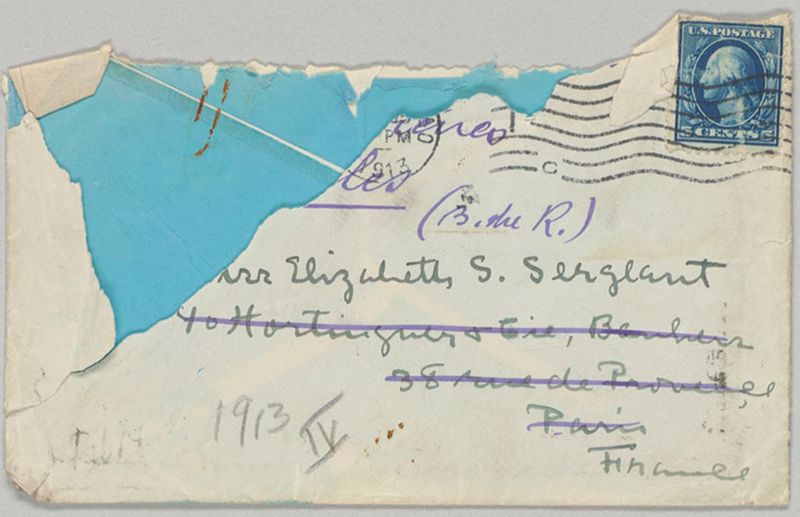 U.S. POSTAGE
5 CENTS 5
PM
1913
les
(B. du R.)
Elizabeth S. Sergeant
Hottinguer & Cie, Bankers
38 rue de Provence
Paris
France
1913 IV